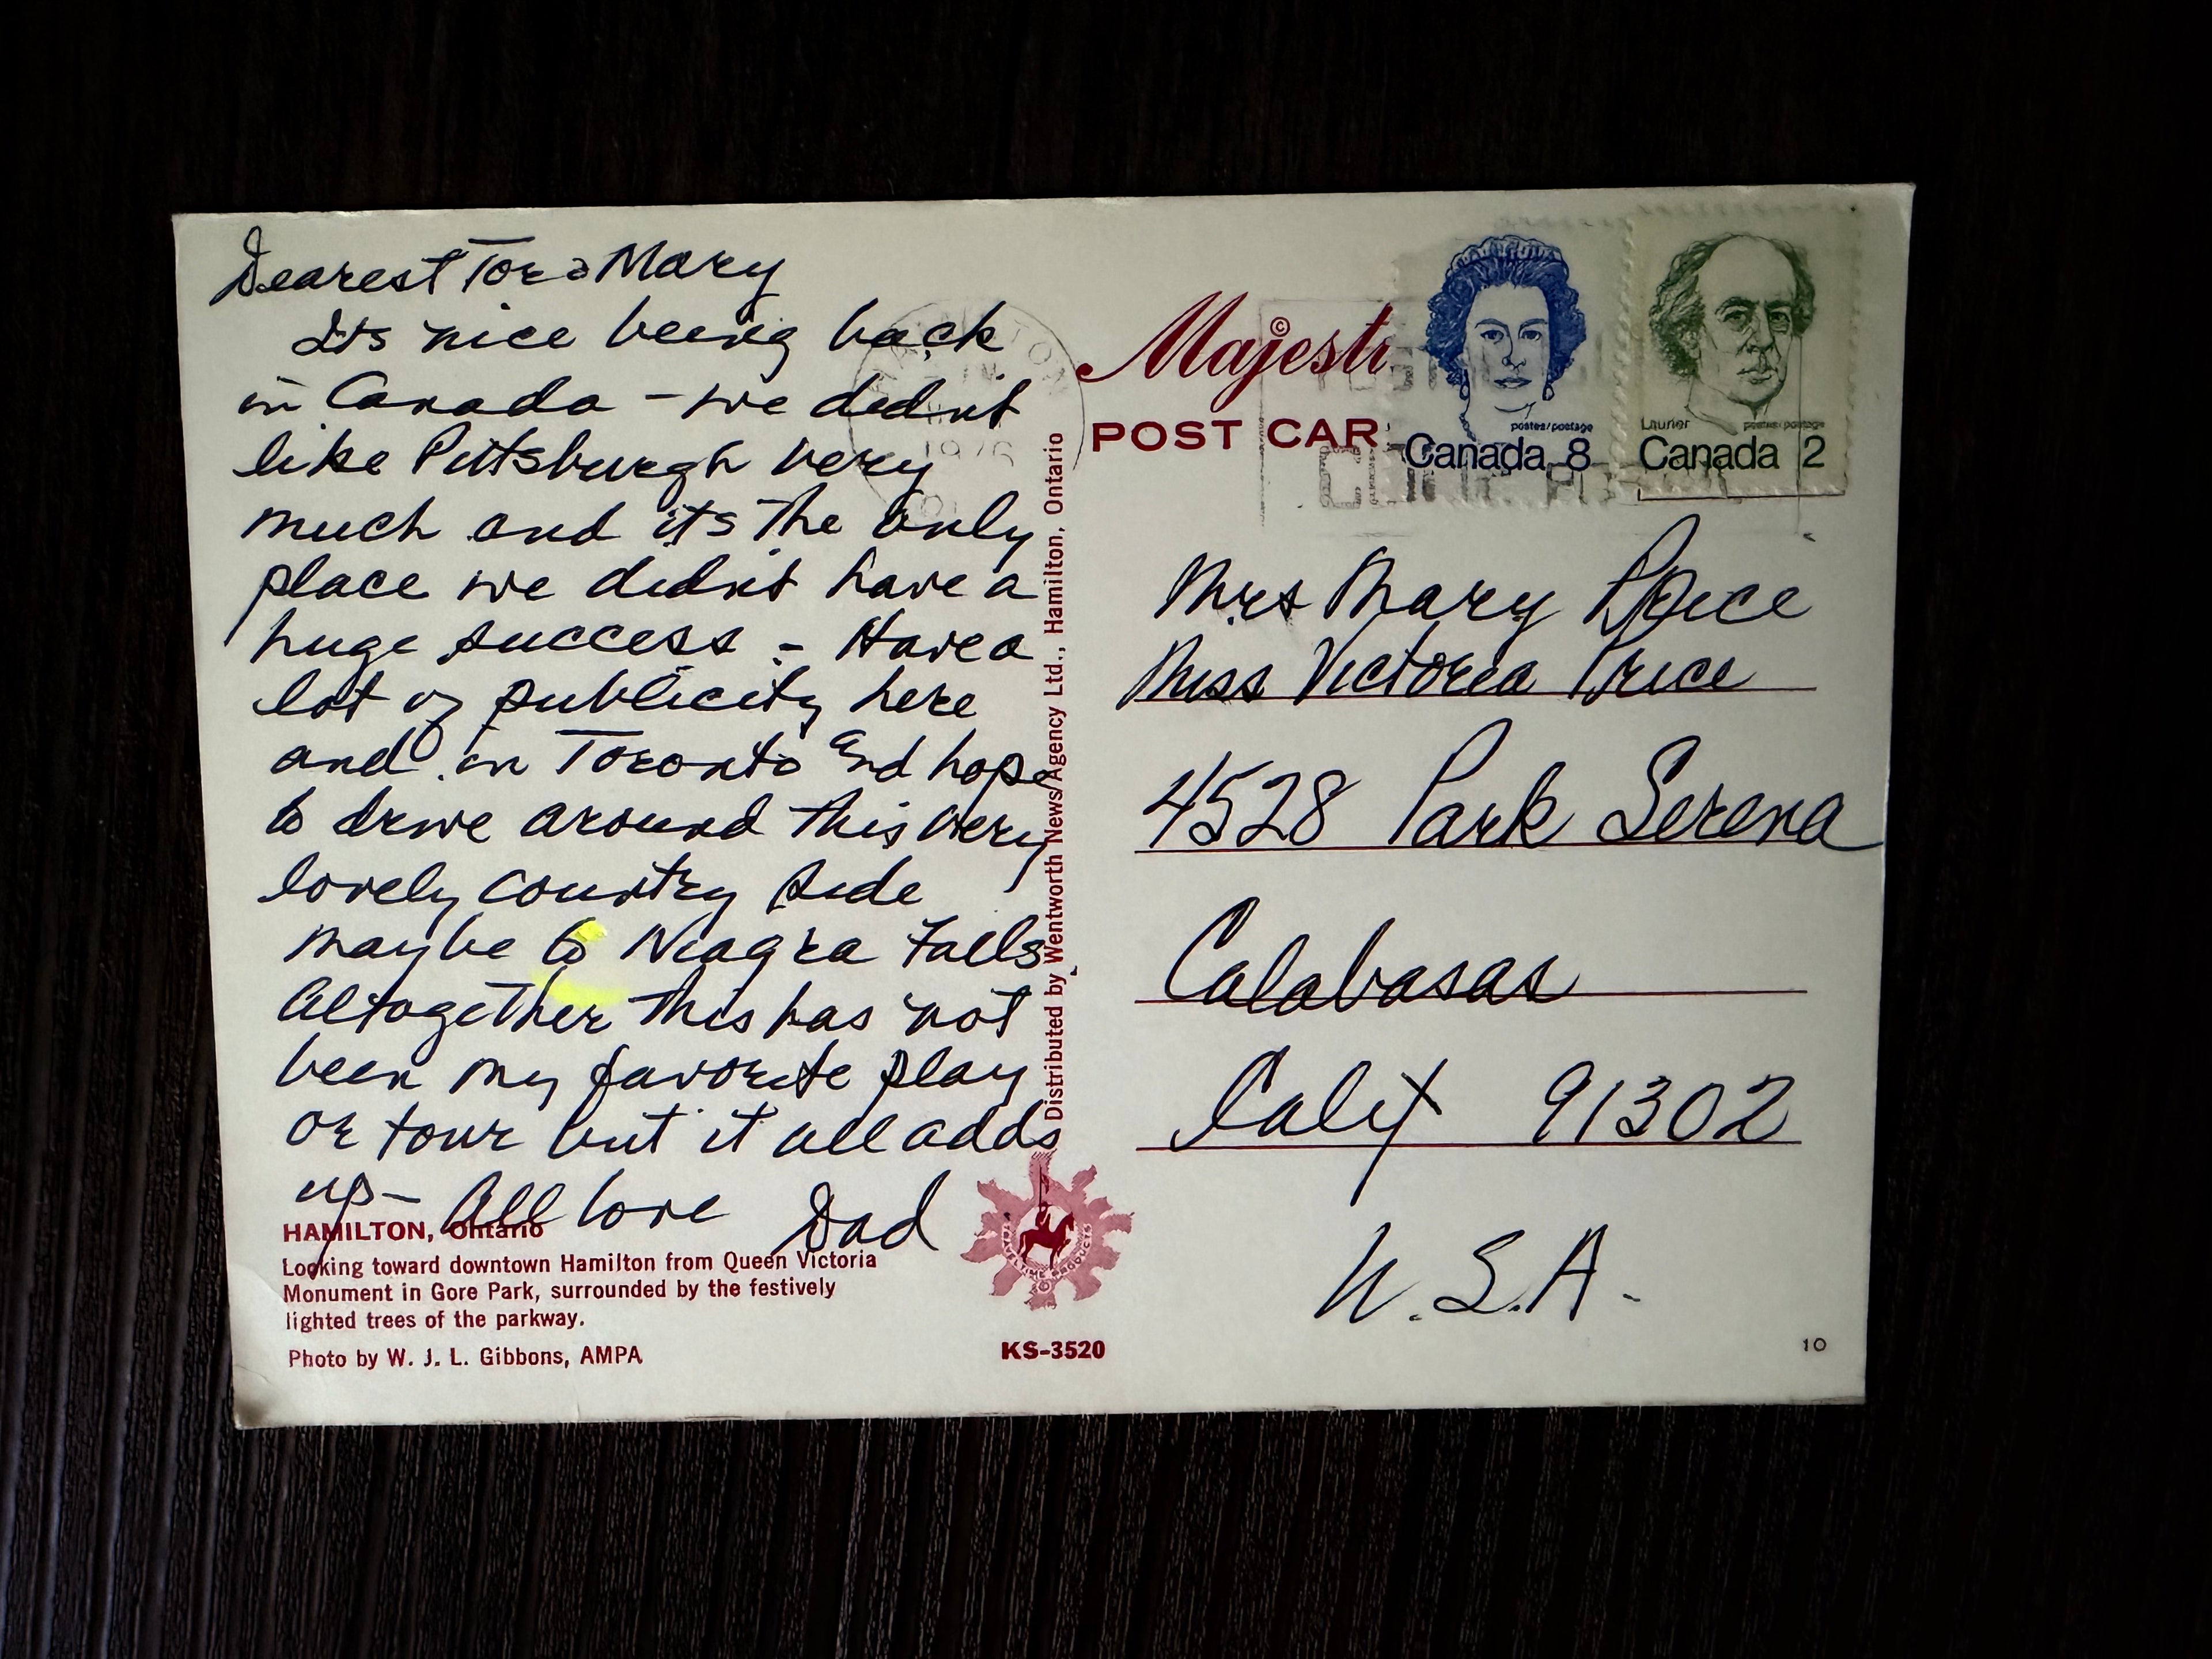 Dearest Tor & Mary
Its nice being back
in Canada - we didnt
like Pittsburgh very
much and its the only
place we didnt have a
huge success - Have a
lot of publicity here
and in Toronto and hope
to drive around this very
lovely country side
maybe to Niagra Falls
Altogether this has not
been my favorite play
or tour but it all adds
up - All love Dad
HAMILTON, Ontario
Looking toward downtown Hamilton from Queen Victoria
Monument in Gore Park, surrounded by the festively
lighted trees of the parkway.
Photo by W. J. L. Gibbons, AMPA
Distributed by Wentworth News Agency Ltd., Hamilton, Ontario
TRAVELTIME PRODUCTS
KS-3520
1976
©
Majesti
POST CAR
postes/postage
Canada 8
Laurier postes/postage
Canada 2
Mrs Mary Price
Miss Victoria Price
4528 Park Serena
Calabasas
Calif 91302
U.S.A.
10